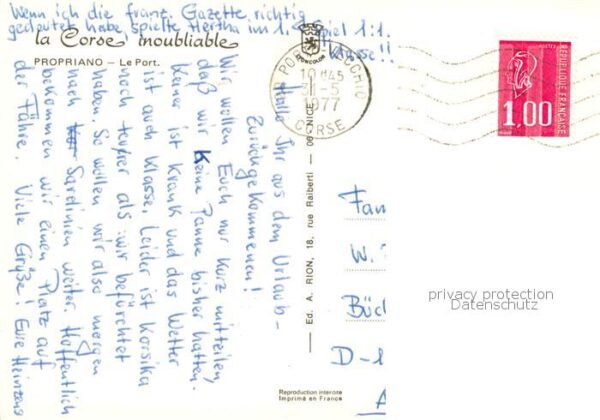 Wenn ich die franz. Gazette richtig
gedeutet habe, spielte Hertha im 1. Spiel 1:1.
Klasse!!
la Corse inoubliable
PROPRIANO — Le Port.
Hallo Ihr aus dem Urlaub-
Zurückgekommenen!
Wir wollen Euch nur kurz mitteilen,
daß wir keine Panne bisher hatten.
Keiner ist krank und das Wetter
ist auch Klasse. Leider ist Korsika
noch teurer als wir befürchtet
haben. So wollen wir also morgen
nach Sardinien weiter. Hoffentlich
bekommen wir einen Platz auf
der Fähre. Viele Grüße! Eure Heinzens
— Ed. A. RION, 18, rue Raiberti — 06 NICE
Reproduction interdite
Imprimé en France
10 H45
3 -5
1977
CORSE
REPUBLIQUE FRANÇAISE
POSTES
1,00
Fam
W.
Büc
D-1
privacy protection
Datenschutz